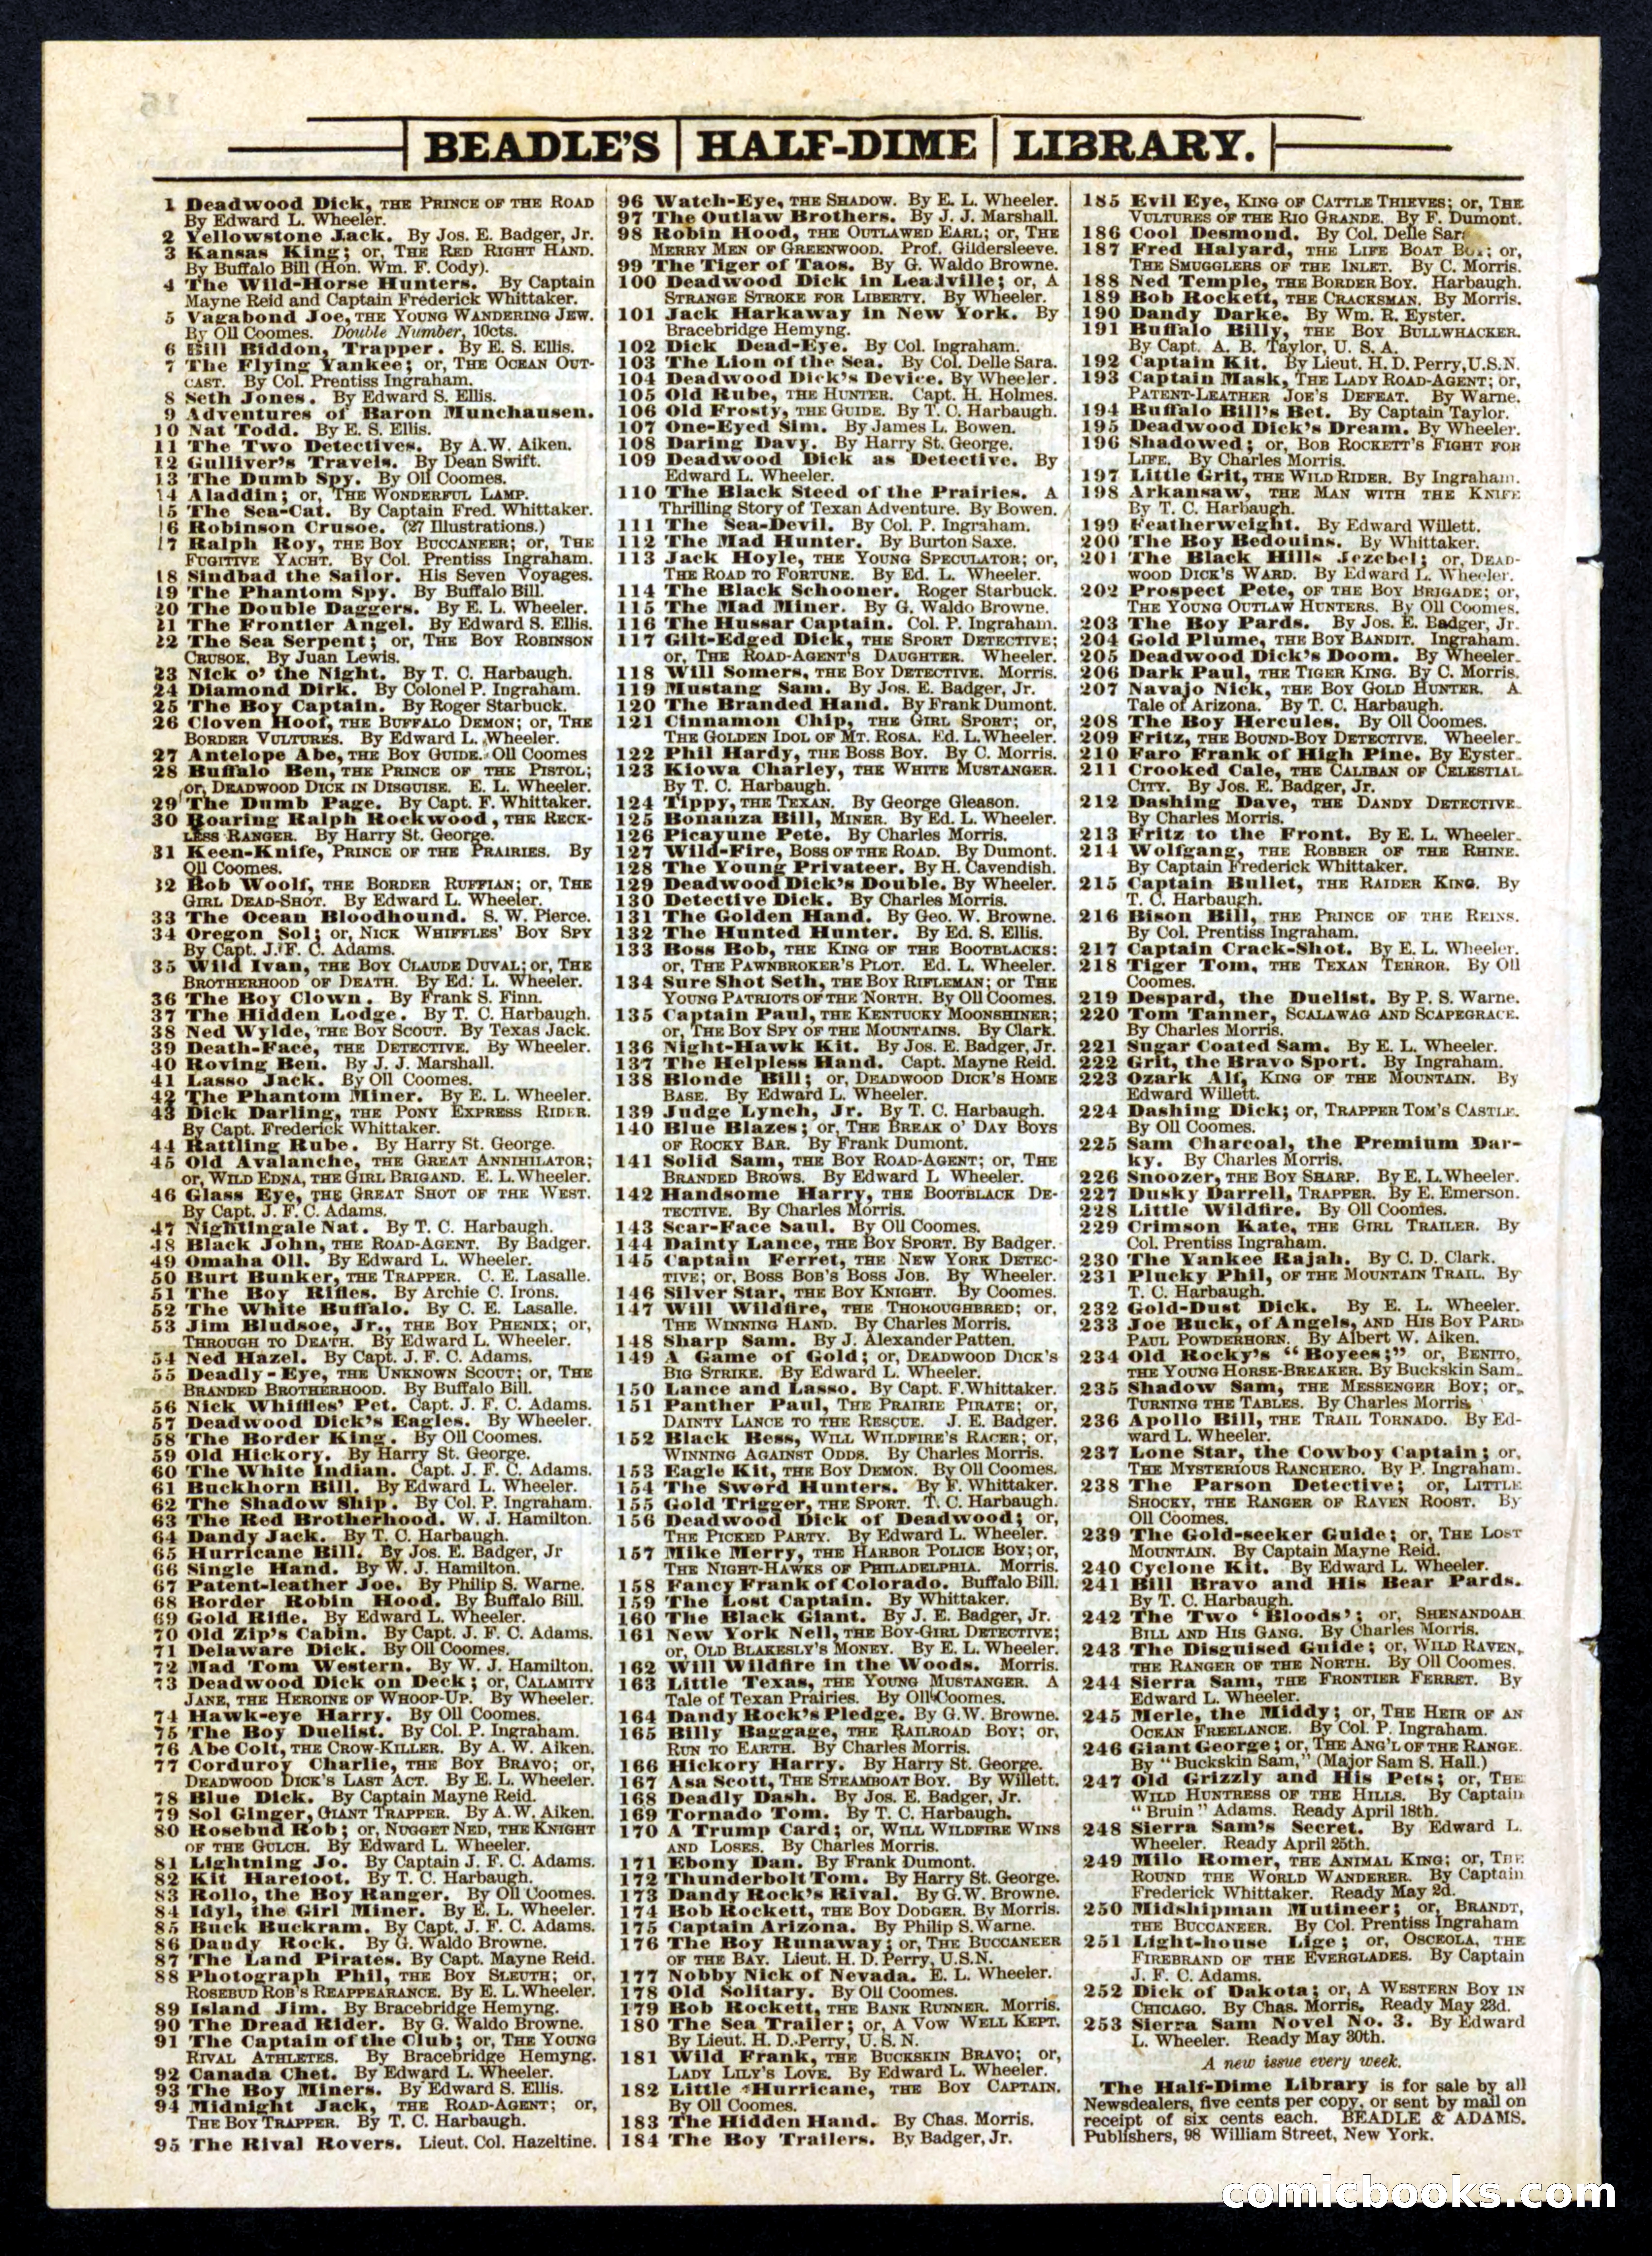 BEADLE'S HALF-DIME LIBRARY.
1 Deadwood Dick, THE PRINCE OF THE ROAD
By Edward L. Wheeler.
2 Yellowstone Jack. By Jos. E. Badger, Jr.
3 Kansas King; or, THE RED RIGHT HAND.
By Buffalo Bill (Hon. Wm. F. Cody).
4 The Wild-Horse Hunters. By Captain
Mayne Reid and Captain Frederick Whittaker.
5 Vagabond Joe, THE YOUNG WANDERING JEW.
By Oll Coomes. Double Number, 10cts.
6 Bill Biddon, Trapper. By E. S. Ellis.
7 The Flying Yankee; or, THE OCEAN OUT-
CAST. By Col. Prentiss Ingraham.
8 Seth Jones. By Edward S. Ellis.
9 Adventures of Baron Munchausen.
10 Nat Todd. By E. S. Ellis.
11 The Two Detectives. By A.W. Aiken.
12 Gulliver's Travels. By Dean Swift.
13 The Dumb Spy. By Oll Coomes.
14 Aladdin; or, THE WONDERFUL LAMP.
15 The Sea-Cat. By Captain Fred. Whittaker.
16 Robinson Crusoe. (27 Illustrations.)
17 Ralph Roy, THE BOY BUCCANEER; or, THE
FUGITIVE YACHT. By Col. Prentiss Ingraham.
18 Sindbad the Sailor. His Seven Voyages.
19 The Phantom Spy. By Buffalo Bill.
20 The Double Daggers. By E. L. Wheeler.
21 The Frontier Angel. By Edward S. Ellis.
22 The Sea Serpent; or, THE BOY ROBINSON
CRUSOE. By Juan Lewis.
23 Nick o' the Night. By T. C. Harbaugh.
24 Diamond Dirk. By Colonel P. Ingraham.
25 The Boy Captain. By Roger Starbuck.
26 Cloven Hoof, THE BUFFALO DEMON; or, THE
BORDER VULTURES. By Edward L. Wheeler.
27 Antelope Abe, THE BOY GUIDE. Oll Coomes
28 Buffalo Ben, THE PRINCE OF THE PISTOL;
or, DEADWOOD DICK IN DISGUISE. E. L. Wheeler.
29 The Dumb Page. By Capt. F. Whittaker.
30 Roaring Ralph Rockwood, THE RECK-
LESS RANGER. By Harry St. George.
31 Keen-Knife, PRINCE OF THE PRAIRIES. By
Oll Coomes.
32 Bob Woolf, THE BORDER RUFFIAN; or, THE
GIRL DEAD-SHOT. By Edward L. Wheeler.
33 The Ocean Bloodhound. S. W. Pierce.
34 Oregon Sol; or, NICK WHIFFLES' BOY SPY
By Capt. J. F. C. Adams.
35 Wild Ivan, THE BOY CLAUDE DUVAL; or, THE
BROTHERHOOD OF DEATH. By Ed. L. Wheeler.
36 The Boy Clown. By Frank S. Finn.
37 The Hidden Lodge. By T. C. Harbaugh.
38 Ned Wylde, THE BOY SCOUT. By Texas Jack.
39 Death-Face, THE DETECTIVE. By Wheeler.
40 Roving Ben. By J. J. Marshall.
41 Lasso Jack. By Oll Coomes.
42 The Phantom Miner. By E. L. Wheeler.
43 Dick Darling, THE PONY EXPRESS RIDER.
By Capt. Frederick Whittaker.
44 Rattling Rube. By Harry St. George.
45 Old Avalanche, THE GREAT ANNIHILATOR;
or, WILD EDNA, THE GIRL BRIGAND. E. L. Wheeler.
46 Glass Eye, THE GREAT SHOT OF THE WEST.
By Capt. J. F. C. Adams.
47 Nightingale Nat. By T. C. Harbaugh.
48 Black John, THE ROAD-AGENT. By Badger.
49 Omaha Oll. By Edward L. Wheeler.
50 Burt Bunker, THE TRAPPER. C. E. Lasalle.
51 The Boy Rifles. By Archie C. Irons.
52 The White Buffalo. By C. E. Lasalle.
53 Jim Bludsoe, Jr., THE BOY PHENIX; or,
THROUGH TO DEATH. By Edward L. Wheeler.
54 Ned Hazel. By Capt. J. F. C. Adams.
55 Deadly-Eye, THE UNKNOWN SCOUT; or, THE
BRANDED BROTHERHOOD. By Buffalo Bill.
56 Nick Whiffles' Pet. Capt. J. F. C. Adams.
57 Deadwood Dick's Eagles. By Wheeler.
58 The Border King. By Oll Coomes.
59 Old Hickory. By Harry St. George.
60 The White Indian. Capt. J. F. C. Adams.
61 Buckhorn Bill. By Edward L. Wheeler.
62 The Shadow Ship. By Col. P. Ingraham.
63 The Red Brotherhood. W. J. Hamilton.
64 Dandy Jack. By T. C. Harbaugh.
65 Hurricane Bill. By Jos. E. Badger, Jr
66 Single Hand. By W. J. Hamilton.
67 Patent-leather Joe. By Philip S. Warne.
68 Border Robin Hood. By Buffalo Bill.
69 Gold Rifle. By Edward L. Wheeler.
70 Old Zip's Cabin. By Capt. J. F. C. Adams.
71 Delaware Dick. By Oll Coomes.
72 Mad Tom Western. By W. J. Hamilton.
73 Deadwood Dick on Deck; or, CALAMITY
JANE, THE HEROINE OF WHOOP-UP. By Wheeler.
74 Hawk-eye Harry. By Oll Coomes.
75 The Boy Duelist. By Col. P. Ingraham.
76 Abe Colt, THE CROW-KILLER. By A. W. Aiken.
77 Corduroy Charlie, THE BOY BRAVO; or,
DEADWOOD DICK'S LAST ACT. By E. L. Wheeler.
78 Blue Dick. By Captain Mayne Reid.
79 Sol Ginger, GIANT TRAPPER. By A. W. Aiken.
80 Rosebud Rob; or, NUGGET NED, THE KNIGHT
OF THE GULCH. By Edward L. Wheeler.
81 Lightning Jo. By Captain J. F. C. Adams.
82 Kit Harefoot. By T. C. Harbaugh.
83 Rollo, the Boy Ranger. By Oll Coomes.
84 Idyl, the Girl Miner. By E. L. Wheeler.
85 Buck Buckram. By Capt. J. F. C. Adams.
86 Dandy Rock. By G. Waldo Browne.
87 The Land Pirates. By Capt. Mayne Reid.
88 Photograph Phil, THE BOY SLEUTH; or,
ROSEBUD ROB'S REAPPEARANCE. By E. L. Wheeler.
89 Island Jim. By Bracebridge Hemyng.
90 The Dread Rider. By G. Waldo Browne.
91 The Captain of the Club; or, THE YOUNG
RIVAL ATHLETES. By Bracebridge Hemyng.
92 Canada Chet. By Edward L. Wheeler.
93 The Boy Miners. By Edward S. Ellis.
94 Midnight Jack, THE ROAD-AGENT; or,
THE BOY TRAPPER. By T. C. Harbaugh.
95 The Rival Rovers. Lieut. Col. Hazeltine.
96 Watch-Eye, THE SHADOW. By E. L. Wheeler.
97 The Outlaw Brothers. By J. J. Marshall.
98 Robin Hood, THE OUTLAWED EARL; or, THE
MERRY MEN OF GREENWOOD. Prof. Gildersleeve.
99 The Tiger of Taos. By G. Waldo Browne.
100 Deadwood Dick in Leadville; or, A
STRANGE STROKE FOR LIBERTY. By Wheeler.
101 Jack Harkaway in New York. By
Bracebridge Hemyng.
102 Dick Dead-Eye. By Col. Ingraham.
103 The Lion of the Sea. By Col. Delle Sara.
104 Deadwood Dick's Device. By Wheeler.
105 Old Rube, THE HUNTER. Capt. H. Holmes.
106 Old Frosty, THE GUIDE. By T. C. Harbaugh.
107 One-Eyed Sim. By James L. Bowen.
108 Daring Davy. By Harry St. George.
109 Deadwood Dick as Detective. By
Edward L. Wheeler.
110 The Black Steed of the Prairies. A
Thrilling Story of Texan Adventure. By Bowen.
111 The Sea-Devil. By Col. P. Ingraham.
112 The Mad Hunter. By Burton Saxe.
113 Jack Hoyle, THE YOUNG SPECULATOR; or,
THE ROAD TO FORTUNE. By Ed. L. Wheeler.
114 The Black Schooner. Roger Starbuck.
115 The Mad Miner. By G. Waldo Browne.
116 The Hussar Captain. Col. P. Ingraham.
117 Gilt-Edged Dick, THE SPORT DETECTIVE;
or, THE ROAD-AGENT'S DAUGHTER. Wheeler.
118 Will Somers, THE BOY DETECTIVE. Morris.
119 Mustang Sam. By Jos. E. Badger, Jr.
120 The Branded Hand. By Frank Dumont.
121 Cinnamon Chip, THE GIRL SPORT; or,
THE GOLDEN IDOL OF MT. ROSA. Ed. L. Wheeler.
122 Phil Hardy, THE BOSS BOY. By C. Morris.
123 Kiowa Charley, THE WHITE MUSTANGER.
By T. C. Harbaugh.
124 Tippy, THE TEXAN. By George Gleason.
125 Bonanza Bill, MINER. By Ed. L. Wheeler.
126 Picayune Pete. By Charles Morris.
127 Wild-Fire, BOSS OF THE ROAD. By Dumont.
128 The Young Privateer. By H. Cavendish.
129 Deadwood Dick's Double. By Wheeler.
130 Detective Dick. By Charles Morris.
131 The Golden Hand. By Geo. W. Browne.
132 The Hunted Hunter. By Ed. S. Ellis.
133 Boss Bob, THE KING OF THE BOOTBLACKS;
or, THE PAWNBROKER'S PLOT. Ed. L. Wheeler.
134 Sure Shot Seth, THE BOY RIFLEMAN; or THE
YOUNG PATRIOTS OF THE NORTH. By Oll Coomes.
135 Captain Paul, THE KENTUCKY MOONSHINER;
or, THE BOY SPY OF THE MOUNTAINS. By Clark.
136 Night-Hawk Kit. By Jos. E. Badger, Jr.
137 The Helpless Hand. Capt. Mayne Reid.
138 Blonde Bill; or, DEADWOOD DICK'S HOME
BASE. By Edward L. Wheeler.
139 Judge Lynch, Jr. By T. C. Harbaugh.
140 Blue Blazes; or, THE BREAK O' DAY BOYS
OF ROCKY BAR. By Frank Dumont.
141 Solid Sam, THE BOY ROAD-AGENT; or, THE
BRANDED BROWS. By Edward L Wheeler.
142 Handsome Harry, THE BOOTBLACK DE-
TECTIVE. By Charles Morris.
143 Scar-Face Saul. By Oll Coomes.
144 Dainty Lance, THE BOY SPORT. By Badger.
145 Captain Ferret, THE NEW YORK DETEC-
TIVE; or, BOSS BOB'S BOSS JOB. By Wheeler.
146 Silver Star, THE BOY KNIGHT. By Coomes.
147 Will Wildfire, THE THOROUGHBRED; or,
THE WINNING HAND. By Charles Morris.
148 Sharp Sam. By J. Alexander Patten.
149 A Game of Gold; or, DEADWOOD DICK'S
BIG STRIKE. By Edward L. Wheeler.
150 Lance and Lasso. By Capt. F. Whittaker.
151 Panther Paul, THE PRAIRIE PIRATE; or,
DAINTY LANCE TO THE RESCUE. J. E. Badger.
152 Black Bess, WILL WILDFIRE'S RACER; or,
WINNING AGAINST ODDS. By Charles Morris.
153 Eagle Kit, THE BOY DEMON. By Oll Coomes.
154 The Sword Hunters. By F. Whittaker.
155 Gold Trigger, THE SPORT. T. C. Harbaugh.
156 Deadwood Dick of Deadwood; or,
THE PICKED PARTY. By Edward L. Wheeler.
157 Mike Merry, THE HARBOR POLICE BOY; or,
THE NIGHT-HAWKS OF PHILADELPHIA. Morris.
158 Fancy Frank of Colorado. Buffalo Bill.
159 The Lost Captain. By Whittaker.
160 The Black Giant. By J. E. Badger, Jr.
161 New York Nell, THE BOY-GIRL DETECTIVE;
or, OLD BLAKESLY'S MONEY. By E. L. Wheeler.
162 Will Wildfire in the Woods. Morris.
163 Little Texas, THE YOUNG MUSTANGER. A
Tale of Texan Prairies. By Oll Coomes.
164 Dandy Rock's Pledge. By G. W. Browne.
165 Billy Baggage, THE RAILROAD BOY; or,
RUN TO EARTH. By Charles Morris.
166 Hickory Harry. By Harry St. George.
167 Asa Scott, THE STEAMBOAT BOY. By Willett.
168 Deadly Dash. By Jos. E. Badger, Jr.
169 Tornado Tom. By T. C. Harbaugh.
170 A Trump Card; or, WILL WILDFIRE WINS
AND LOSES. By Charles Morris.
171 Ebony Dan. By Frank Dumont.
172 Thunderbolt Tom. By Harry St. George.
173 Dandy Rock's Rival. By G. W. Browne.
174 Bob Rockett, THE BOY DODGER. By Morris.
175 Captain Arizona. By Philip S. Warne.
176 The Boy Runaway; or, THE BUCCANEER
OF THE BAY. Lieut. H. D. Perry, U.S.N.
177 Nobby Nick of Nevada. E. L. Wheeler.
178 Old Solitary. By Oll Coomes.
179 Bob Rockett, THE BANK RUNNER. Morris.
180 The Sea Trailer; or, A VOW WELL KEPT.
By Lieut. H. D. Perry, U. S. N.
181 Wild Frank, THE BUCKSKIN BRAVO; or,
LADY LILY'S LOVE. By Edward L. Wheeler.
182 Little Hurricane, THE BOY CAPTAIN.
By Oll Coomes.
183 The Hidden Hand. By Chas. Morris.
184 The Boy Trailers. By Badger, Jr.
185 Evil Eye, KING OF CATTLE THIEVES; or, THE
VULTURES OF THE RIO GRANDE. By F. Dumont.
186 Cool Desmond. By Col. Delle Sara
187 Fred Halyard, THE LIFE BOAT BOY; or,
THE SMUGGLERS OF THE INLET. By C. Morris.
188 Ned Temple, THE BORDER BOY. Harbaugh.
189 Bob Rockett, THE CRACKSMAN. By Morris.
190 Dandy Darke. By Wm. R. Eyster.
191 Buffalo Billy, THE BOY BULLWHACKER.
By Capt. A. B. Taylor, U. S. A.
192 Captain Kit. By Lieut. H. D. Perry, U.S.N.
193 Captain Mask, THE LADY ROAD-AGENT; or,
PATENT-LEATHER JOE'S DEFEAT. By Warne.
194 Buffalo Bill's Bet. By Captain Taylor.
195 Deadwood Dick's Dream. By Wheeler.
196 Shadowed; or, BOB ROCKETT'S FIGHT FOR
LIFE. By Charles Morris.
197 Little Grit, THE WILD RIDER. By Ingraham.
198 Arkansaw, THE MAN WITH THE KNIFE
By T. C. Harbaugh.
199 Featherweight. By Edward Willett.
200 The Boy Bedouins. By Whittaker.
201 The Black Hills Jezebel; or, DEAD-
WOOD DICK'S WARD. By Edward L. Wheeler.
202 Prospect Pete, OF THE BOY BRIGADE; or,
THE YOUNG OUTLAW HUNTERS. By Oll Coomes.
203 The Boy Pards. By Jos. E. Badger, Jr.
204 Gold Plume, THE BOY BANDIT. Ingraham.
205 Deadwood Dick's Doom. By Wheeler.
206 Dark Paul, THE TIGER KING. By C. Morris.
207 Navajo Nick, THE BOY GOLD HUNTER. A
Tale of Arizona. By T. C. Harbaugh.
208 The Boy Hercules. By Oll Coomes.
209 Fritz, THE BOUND-BOY DETECTIVE. Wheeler.
210 Faro Frank of High Pine. By Eyster.
211 Crooked Cale, THE CALIBAN OF CELESTIAL
CITY. By Jos. E. Badger, Jr.
212 Dashing Dave, THE DANDY DETECTIVE.
By Charles Morris.
213 Fritz to the Front. By E. L. Wheeler.
214 Wolfgang, THE ROBBER OF THE RHINE.
By Captain Frederick Whittaker.
215 Captain Bullet, THE RAIDER KING. By
T. C. Harbaugh.
216 Bison Bill, THE PRINCE OF THE REINS.
By Col. Prentiss Ingraham.
217 Captain Crack-Shot. By E. L. Wheeler.
218 Tiger Tom, THE TEXAN TERROR. By Oll
Coomes.
219 Despard, the Duelist. By P. S. Warne.
220 Tom Tanner, SCALAWAG AND SCAPEGRACE.
By Charles Morris.
221 Sugar Coated Sam. By E. L. Wheeler.
222 Grit, the Bravo Sport. By Ingraham.
223 Ozark Alf, KING OF THE MOUNTAIN. By
Edward Willett.
224 Dashing Dick; or, TRAPPER TOM'S CASTLE.
By Oll Coomes.
225 Sam Charcoal, the Premium Dar-
ky. By Charles Morris.
226 Snoozer, THE BOY SHARP. By E. L. Wheeler.
227 Dusky Darrell, TRAPPER. By E. Emerson.
228 Little Wildfire. By Oll Coomes.
229 Crimson Kate, THE GIRL TRAILER. By
Col. Prentiss Ingraham.
230 The Yankee Rajah. By C. D. Clark.
231 Plucky Phil, OF THE MOUNTAIN TRAIL. By
T. C. Harbaugh.
232 Gold-Dust Dick. By E. L. Wheeler.
233 Joe Buck, of Angels, AND HIS BOY PARD
PAUL POWDERHORN. By Albert W. Aiken.
234 Old Rocky's "Boyees;" or, BENITO,
THE YOUNG HORSE-BREAKER. By Buckskin Sam.
235 Shadow Sam, THE MESSENGER BOY; or,
TURNING THE TABLES. By Charles Morris
236 Apollo Bill, THE TRAIL TORNADO. By Ed-
ward L. Wheeler.
237 Lone Star, the Cowboy Captain; or,
THE MYSTERIOUS RANCHERO. By P. Ingraham.
238 The Parson Detective; or, LITTLE
SHOCKY, THE RANGER OF RAVEN ROOST. By
Oll Coomes.
239 The Gold-seeker Guide; or, THE LOST
MOUNTAIN. By Captain Mayne Reid.
240 Cyclone Kit. By Edward L. Wheeler.
241 Bill Bravo and His Bear Pards.
By T. C. Harbaugh.
242 The Two 'Bloods'; or, SHENANDOAH
BILL AND HIS GANG. By Charles Morris.
243 The Disguised Guide; or, WILD RAVEN,
THE RANGER OF THE NORTH. By Oll Coomes.
244 Sierra Sam, THE FRONTIER FERRET. By
Edward L. Wheeler.
245 Merle, the Middy; or, THE HEIR OF AN
OCEAN FREELANCE. By Col. P. Ingraham.
246 Giant George; or, THE ANG'L OF THE RANGE.
By "Buckskin Sam," (Major Sam S. Hall.)
247 Old Grizzly and His Pets; or, THE
WILD HUNTRESS OF THE HILLS. By Captain
"Bruin" Adams. Ready April 18th.
248 Sierra Sam's Secret. By Edward L.
Wheeler. Ready April 25th.
249 Milo Romer, THE ANIMAL KING; or, THE
ROUND THE WORLD WANDERER. By Captain
Frederick Whittaker. Ready May 2d.
250 Midshipman Mutineer; or, BRANDT,
THE BUCCANEER. By Col. Prentiss Ingraham
251 Light-house Lige; or, OSCEOLA, THE
FIREBRAND OF THE EVERGLADES. By Captain
J. F. C. Adams.
252 Dick of Dakota; or, A WESTERN BOY IN
CHICAGO. By Chas. Morris. Ready May 23d.
253 Sierra Sam Novel No. 3. By Edward
L. Wheeler. Ready May 30th.
A new issue every week.
The Half-Dime Library is for sale by all
Newsdealers, five cents per copy, or sent by mail on
receipt of six cents each. BEADLE & ADAMS.
Publishers, 98 William Street, New York.
comicbooks.com